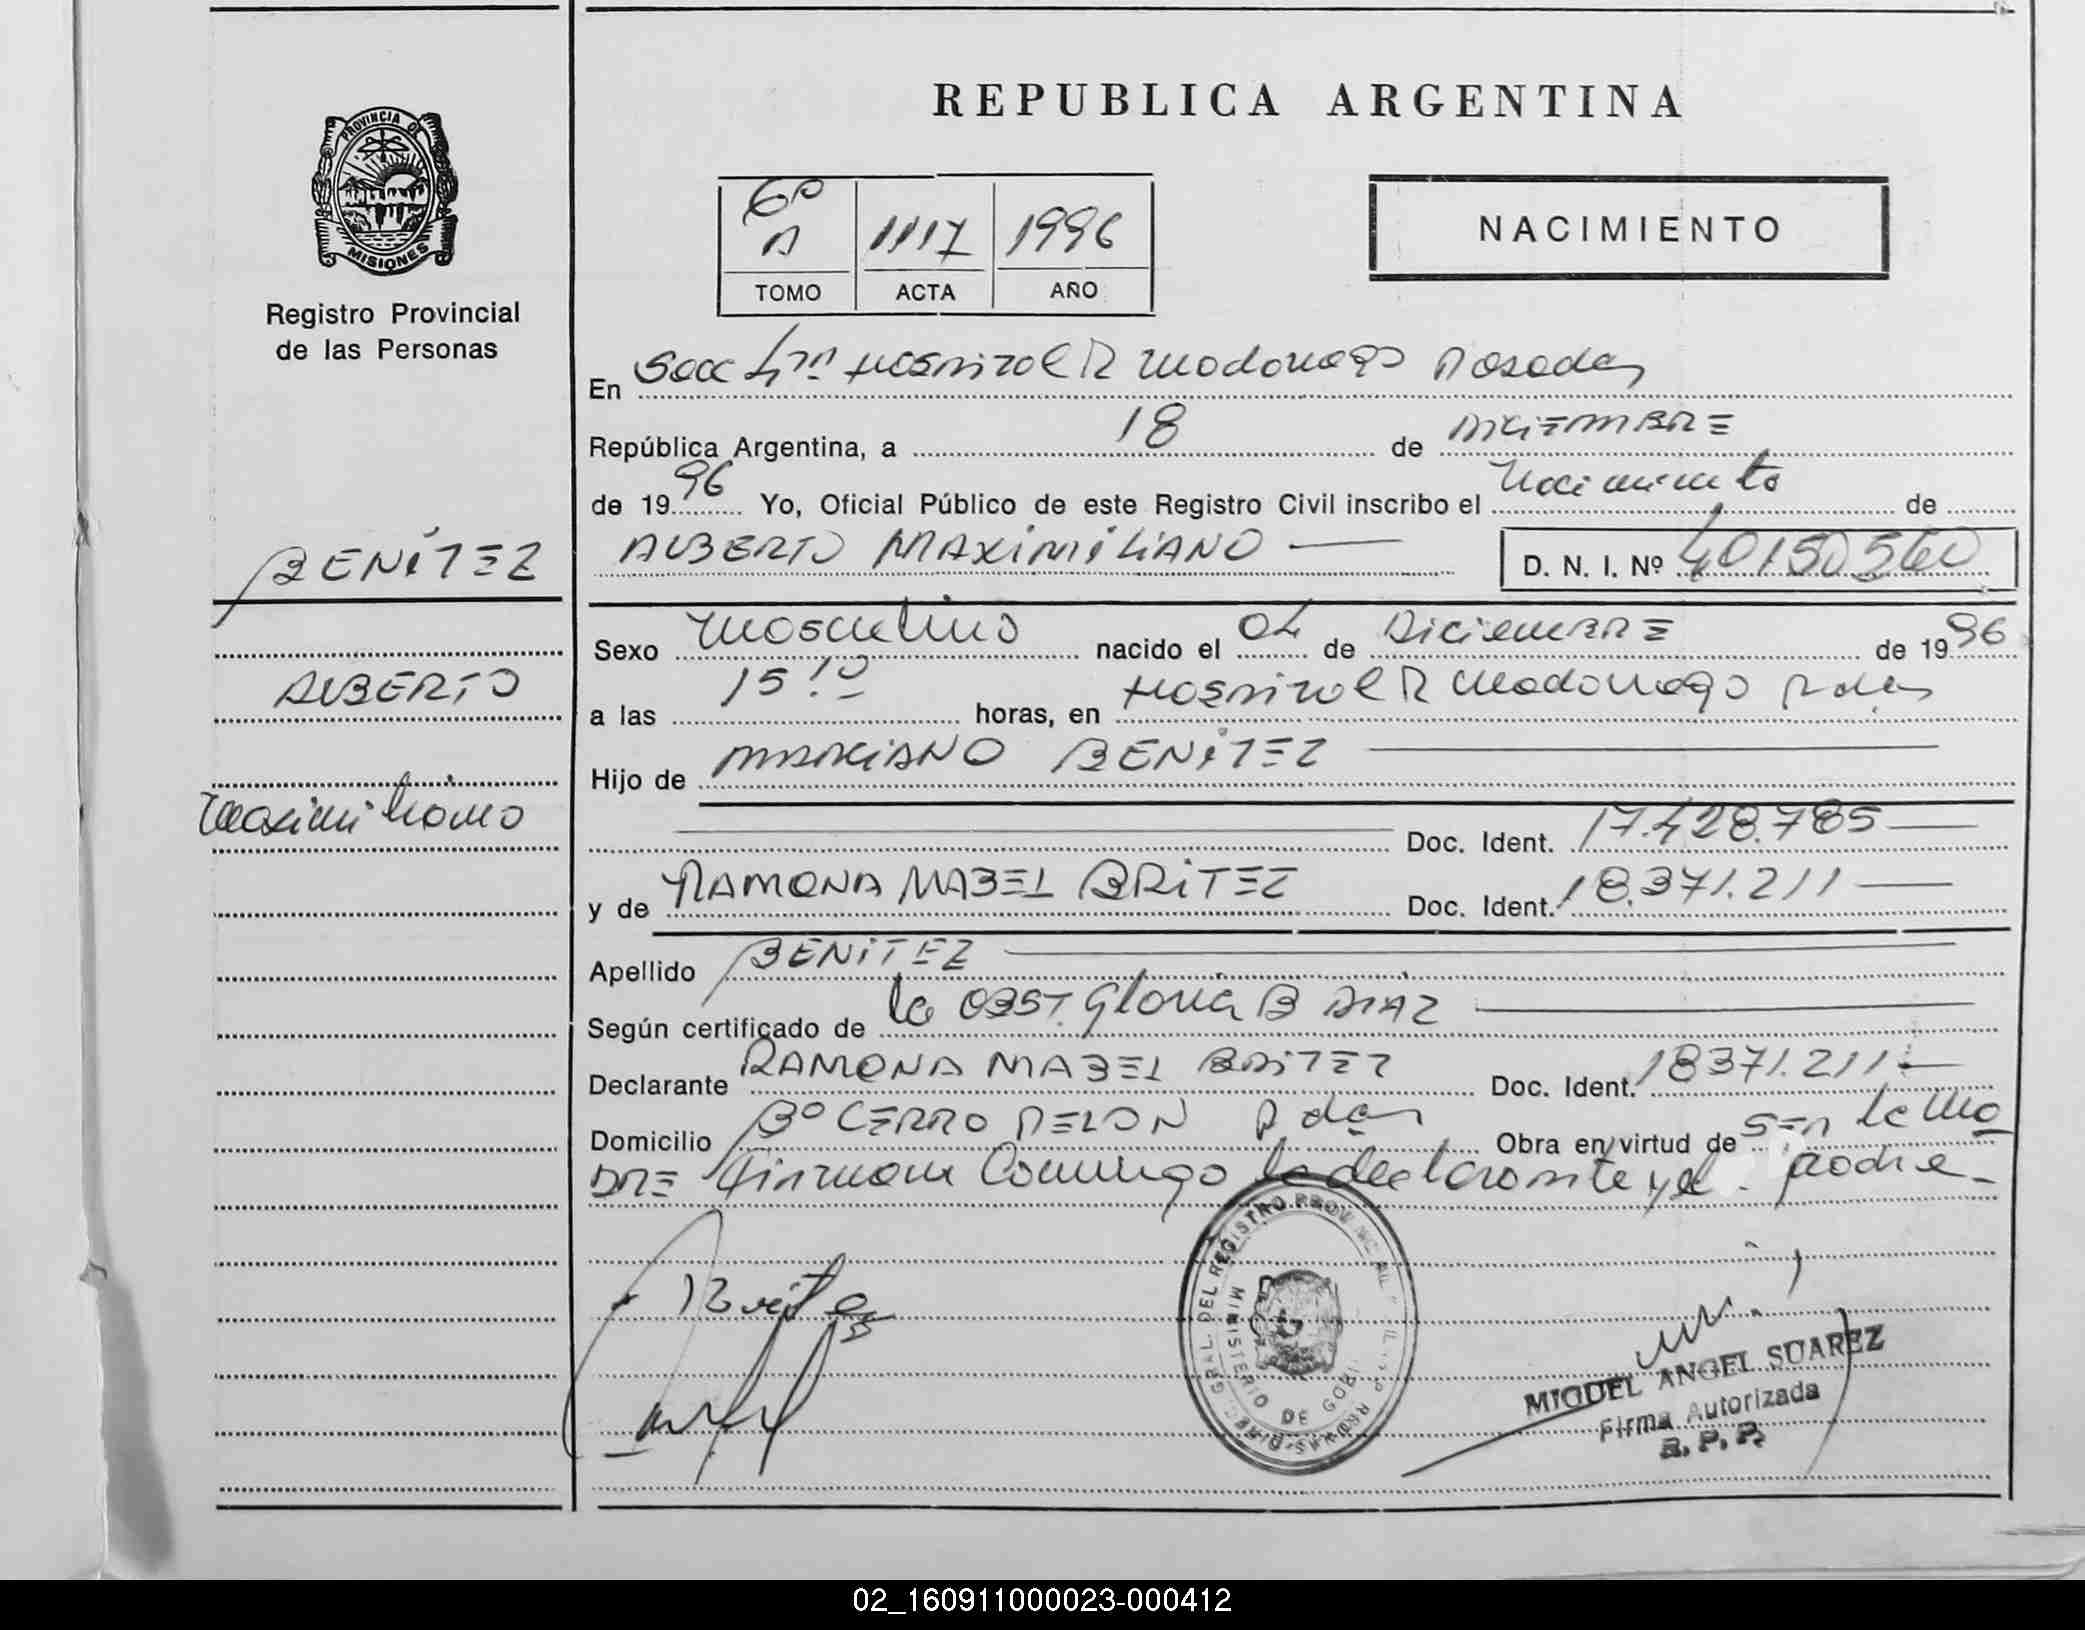 REPUBLICA ARGENTINA
PROVINCIA DE
MISIONES
Registro Provincial
de las Personas
6º
A 1117 1996
TOMO ACTA AÑO
NACIMIENTO
En Secc 4ta Hospital R Madariaga Posadas
República Argentina, a 18 de DICIEMBRE
de 1996 Yo, Oficial Público de este Registro Civil inscribo el Nacimiento de
ALBERTO MAXIMILIANO D. N. I. Nº 40150560
BENÍTEZ
ALBERTO
Maximiliano
Sexo Masculino nacido el 04 de Diciembre de 1996
a las 15:10 horas, en Hospital R Madariaga Pdas
Hijo de MARCIANO BENÍTEZ
Doc. Ident. 17.428.785
y de RAMONA MABEL BRITEZ Doc. Ident. 18.371.211
Apellido BENITEZ
Según certificado de la OBST. Gloria B DIAZ
Declarante RAMONA MABEL BRITEZ Doc. Ident. 18371.211
Domicilio Bº CERRO PELON Pdas Obra en virtud de SER la MA
DRE Firman Conmigo la declarante y el padre
Britez
MIGUEL ANGEL SUAREZ
Firma Autorizada
R. P. P.
DEL REGISTRO
MINISTERIO DE GOB
02_160911000023-000412